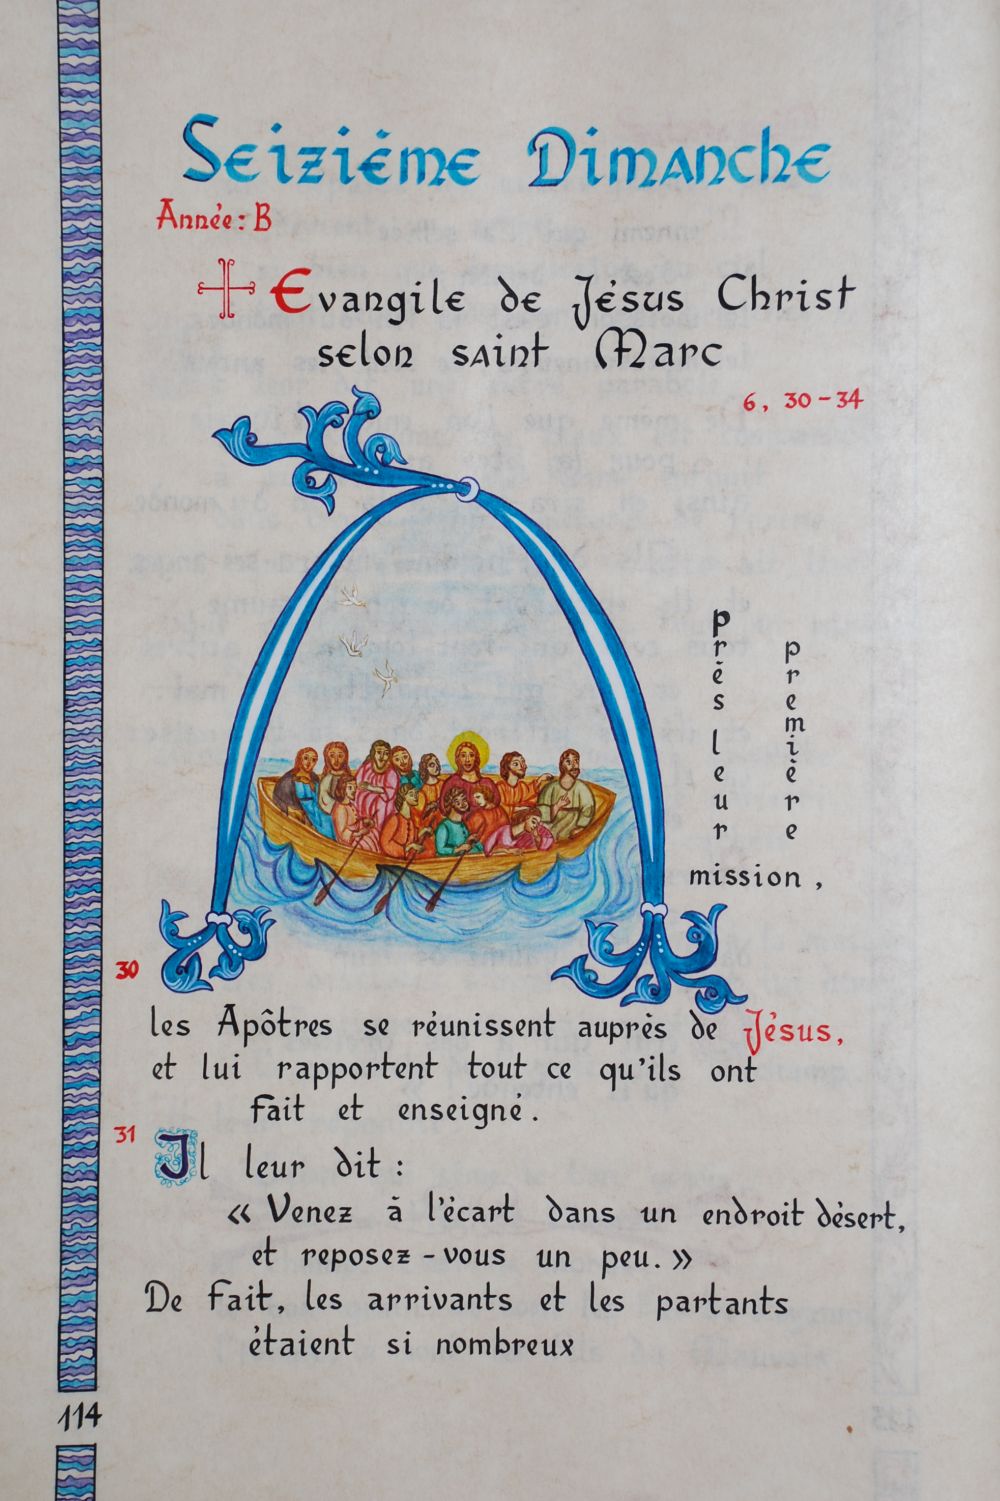 Seizième Dimanche
Année: B
Evangile de Jésus Christ
selon saint Marc
6, 30-34
A
près leur
première
mission,
30
les Apôtres se réunissent auprès de Jésus,
et lui rapportent tout ce qu'ils ont
fait et enseigné.
31
Il leur dit :
« Venez à l'écart dans un endroit désert,
et reposez-vous un peu. »
De fait, les arrivants et les partants
étaient si nombreux
114